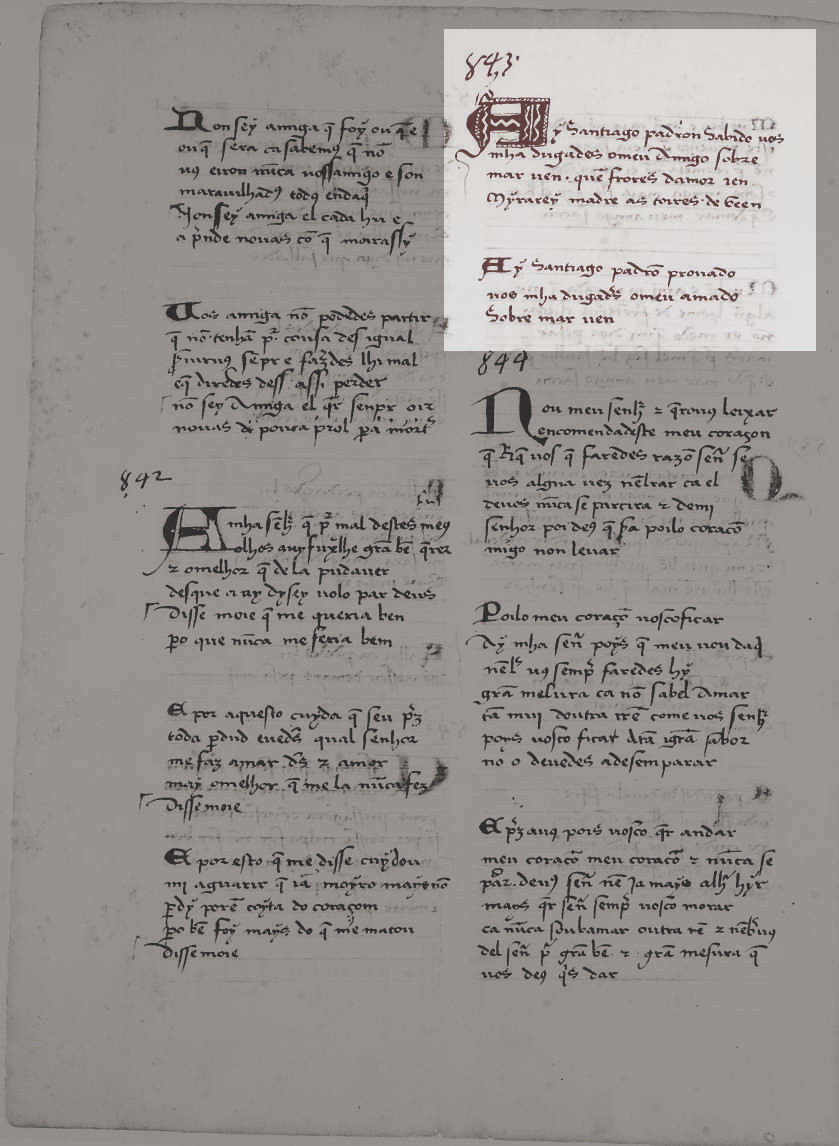 Non sey amiga q̄ foy ou q̄ e
ou q̄ sera ca sabemꝯ q̄ nō
vꝯ euron nūca uossamigo e son
marauilhadꝯ todꝯ endaq̄
Non ssey amiga el cada hu e
a p̄nde nouas cō q̄ moirassy
Vos amiga nō podedes partir
q̄ nō tenhā pr̄ cousa des igual
senpr e fazedes lhi mal
e q̄ diredes dess assi perder
nō sey Amiga el q̄r senpr oir
nouas de pouca prol p̄a mort
842
A mha senh̄ q̄ pr̄ mal destes meꝯ
olhos euy fuy lhe grā bē q̄rer
τ o melhor q̄ dela pud auer
des que a uy dysey uolo par deus
Disse moie q̄ me queria ben
p̄o que nūca me feria bem
E por aquesto cuyda q̄ seu p̄z
toda p̄dud e uedes qual senhor
me faz amar d̄s τ amor
may o melhor q̄ me la nūca fez
Disse moie
E por esto q̄ me disse cuydou
mi a guarir q̄ iā moyro mays nō
p̄dy porē coyta do coraçom
p̄o bē foy mays do q̄ me matou
disse moie
843
Ay Santiago padron Sabido uos
mha dugades o meu Amigo sobre
mar uen quē frores damor ten
Myrarey madre as torres de Geen
Ay Santiago padrō prouado
uos mha dugades o meu amado
Sobre mar uen
844
Non meu senh̄ τ q̄rouꝯ leixar
encomendad este meu coraçon
q̄ q̄ uos q̄ faredes razō sen̄ se
uos algua uez nēbrar ca el
deuos nūca se partira τ demi
senhor poi deꝯ q̄ fa poilo coracō
migo non leuar
Poilo meu coraçō uosco ficar
Ay mha sen̄ poys q̄ meu uou daq̄
nēb̄ uꝯ semp̄ faredes hy
grā melura ca nō sabel Amar
tā mui doutra rē come uos senh̄
poys uosco ficar Atā grā sabor
nō o deuedes a desemparar
E p̄z auꝯ pois uosco q̄r andar
meu coracō meu coracō τ nūca se
par. deuꝯ sen̄ nē ia mays alh̄ hyr
mays q̄r sen̄ semp̄ uosco morar
ca nūca soub amar outra rē τ nēb̄ uꝯ
del sen̄ p̄ grā bē τ grā mesura q̄
uos deꝯ q̄s dar